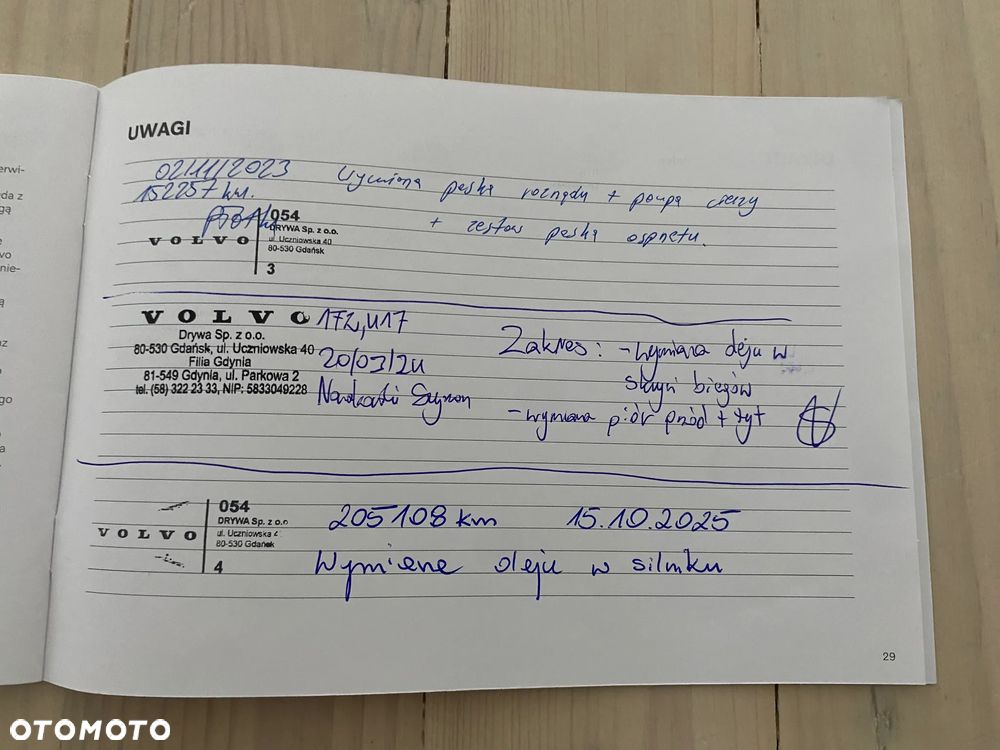 erwi-
da z
gą
vo
nie-
ą
az
go
a
UWAGI
02/11/2023 Wymiana paska rozrządu + pompa cieczy
152257 km. + zestaw paska osprzętu.
VOLVO
054
DRYWA Sp. z o.o.
ul. Uczniowska 40
80-530 Gdańsk
3
VOLVO
Drywa Sp. z o.o.
80-530 Gdańsk, ul. Uczniowska 40
Filia Gdynia
81-549 Gdynia, ul. Parkowa 2
tel. (58) 322 23 33, NIP: 5833049228
172,417
20/03/24
Zakres: - wymiana oleju w
skrzyni biegów
- wymiana piór przód + tył
VOLVO
054
DRYWA Sp. z o.o
ul. Uczniowska 4
80-530 Gdańsk
4
205108 km 15.10.2025
Wymiene oleju w silniku
29
OTOMOTO